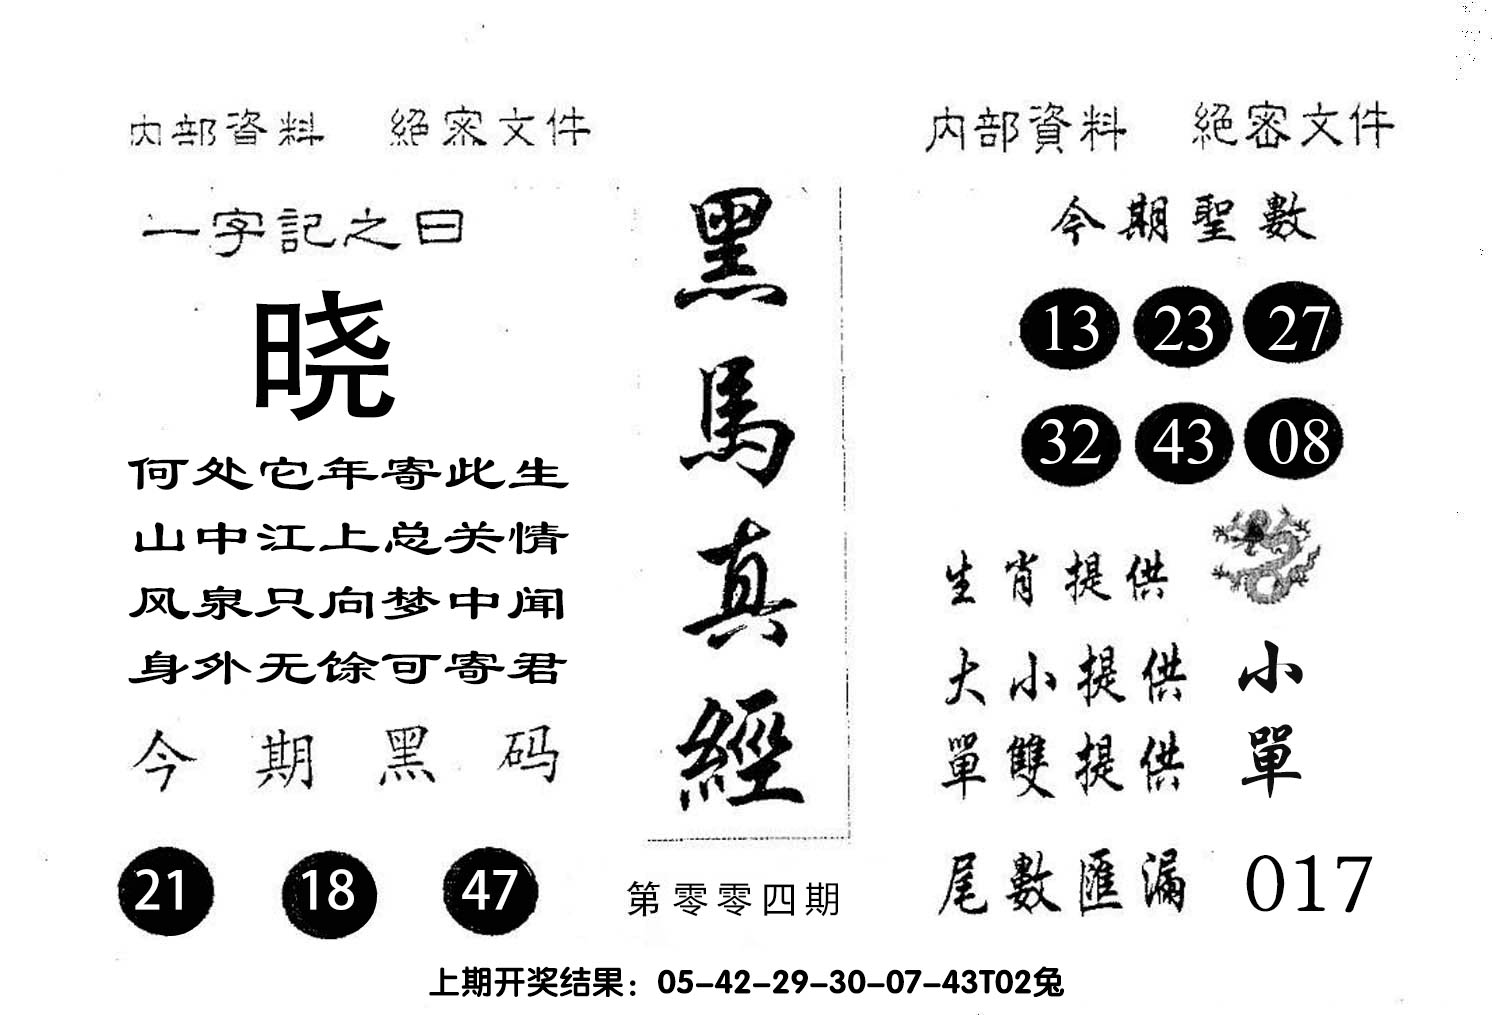 内部資料 絕密文件
一字記之曰
晓
何处它年寄此生
山中江上总关情
风泉只向梦中闻
身外无馀可寄君
今期黑码
21 18 47
黑馬真經
第零零四期
内部資料 絕密文件
今期聖數
13 23 27
32 43 08
生肖提供
大小提供 小
單雙提供 單
尾數匯漏 017
上期开奖结果：05-42-29-30-07-43T02兔